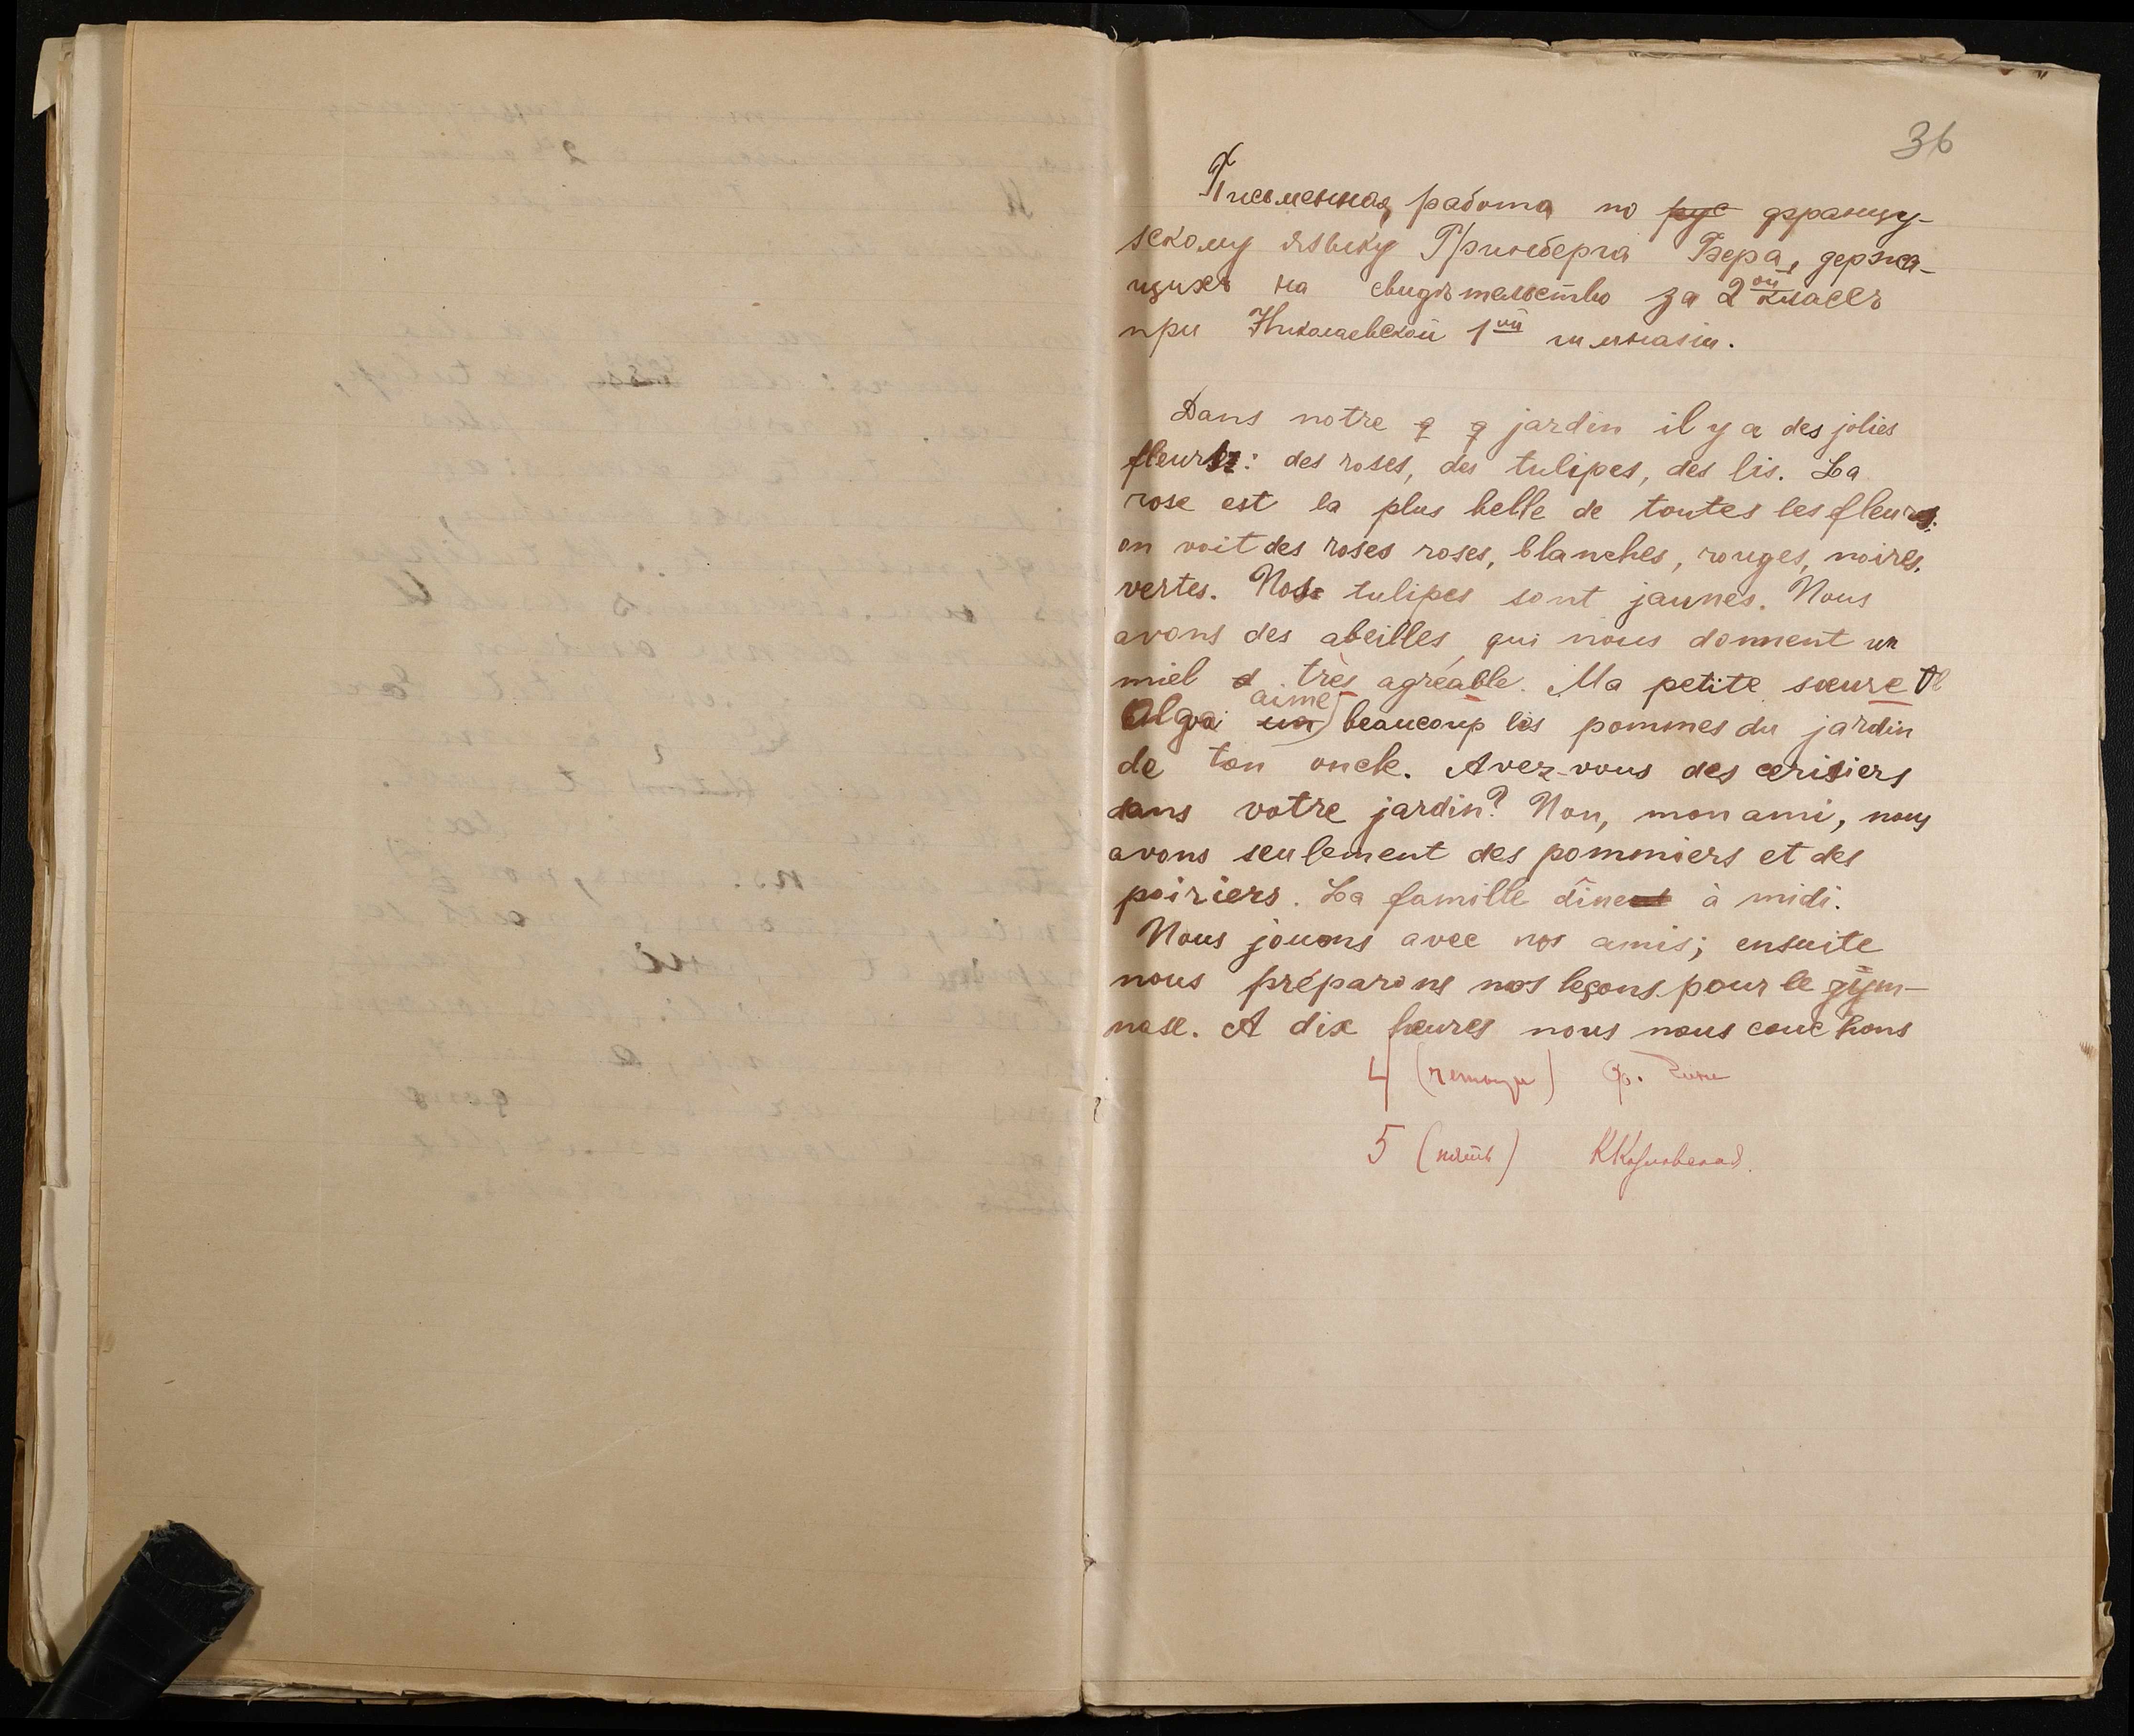 36
Письменная работа по рус францу-
зскому языку Гринберга Бера, держа-
щихъ на свидѣтельство за 2ой классъ
при Николаевской 1ой гимназiи.
Dans notre g g jardin il y a des jolies
fleurs: des roses, des tulipes, des lis. La
rose est la plus belle de toutes les fleurs.
on voit des roses roses, blanches, rouges, noires,
vertes. Nos tulipes sont jaunes. Nous
avons des abeilles, qui nous donnent un
miel d très agréable. Ma petite sœure
Olga aime beaucoup les pommes du jardin
de ton oncle. Avez-vous des cerisiers
dans votre jardin? Non, mon ami, nous
avons seulement des pommiers et des
poiriers. La famille dînent à midi.
Nous jouons avec nos amis; ensuite
nous préparons nos leçons pour le gym-
nase. A dix heures nous nous couchons
4 (четыре)
5 (пять)